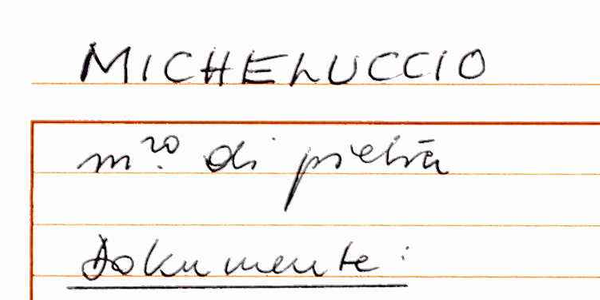 MICHELUCCIO
m.ro di pietra
Dokumente: